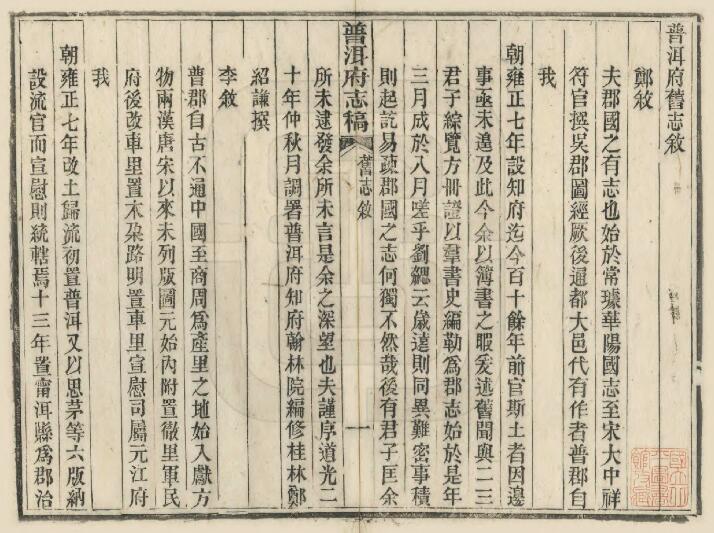 普洱府舊志敘
鄭敘
夫郡國之有志也始於常璩華陽國志至宋大中祥
符官撰吳郡圖經厥後通都大邑代有作者普郡自
我
朝雍正七年設知府迄今百十餘年前官斯土者因邊
事亟未遑及此今余以簿書之暇爰述舊聞與二三
君子綜覽方冊證以羣書史編勒為郡志始於是年
三月成於八月嗟乎劉勰云歲遠則同異難密事積
則起訖易疎郡國之志何獨不然哉後有君子匡余
普洱府志稿
舊志敘
一
所未逮發余所未言是余之深望也夫謹序道光二
十年仲秋月調署普洱府知府翰林院編修桂林鄭
紹謙撰
李敘
普郡自古不通中國至商周為產里之地始入獻方
物兩漢唐宋以來未列版圖元始內附置徹里軍民
府後改車里置木朶路明置車里宣慰司屬元江府
我
朝雍正七年改土歸流初置普洱又以思茅等六版納
設流官而宣慰則統轄焉十三年置甯洱縣為郡治